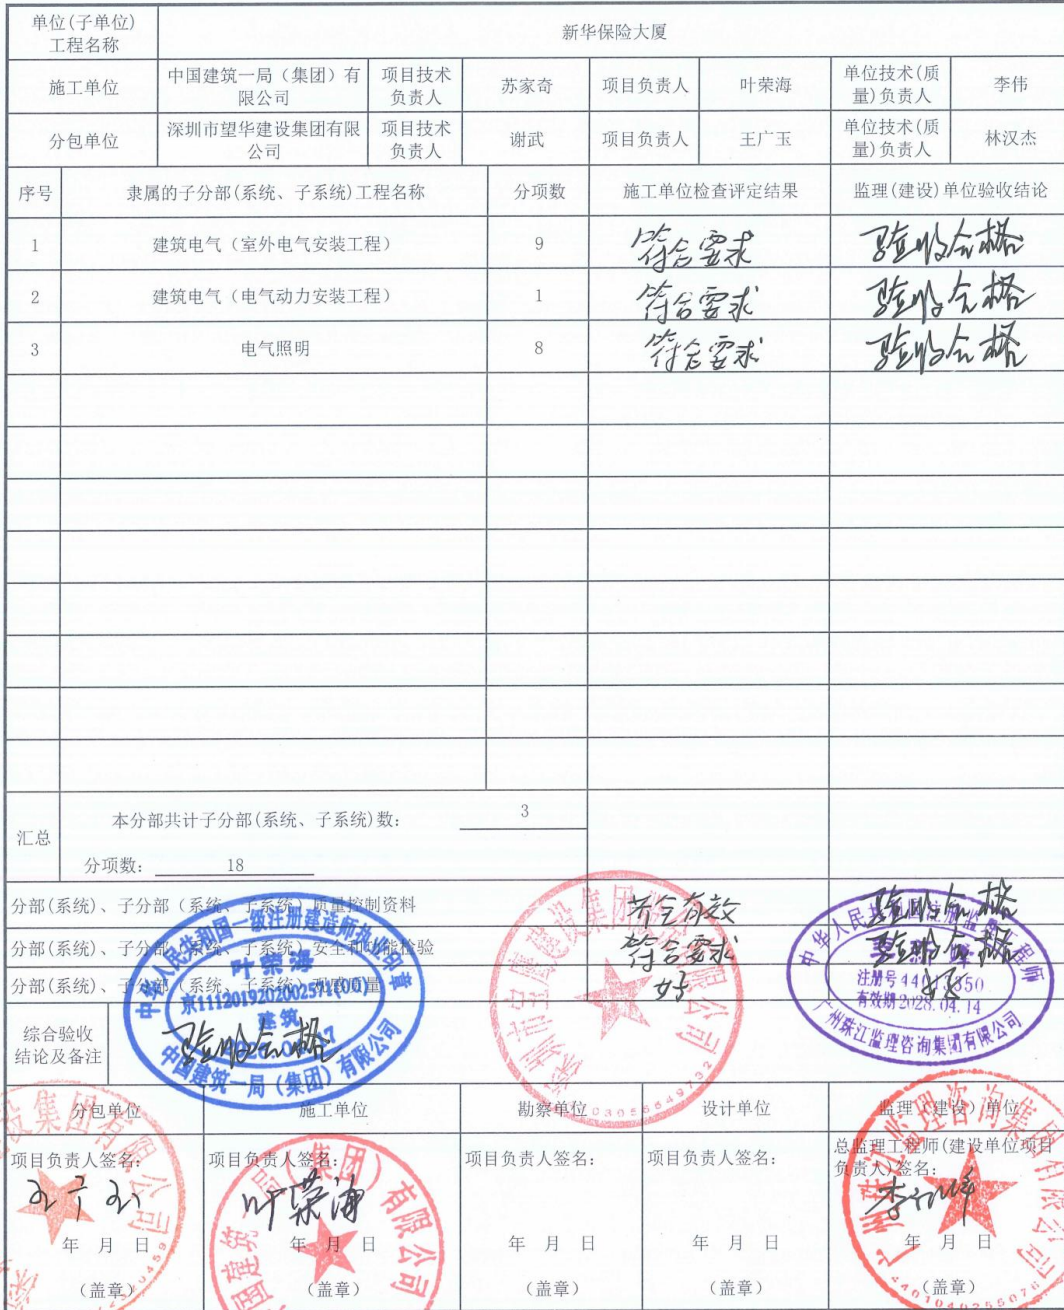 单位(子单位)
工程名称
新华保险大厦
施工单位
中国建筑一局（集团）有
限公司
项目技术
负责人
苏家奇
项目负责人
叶荣海
单位技术(质
量)负责人
李伟
分包单位
深圳市望华建设集团有限
公司
项目技术
负责人
谢武
项目负责人
王广玉
单位技术(质
量)负责人
林汉杰
序号
隶属的子分部(系统、子系统)工程名称
分项数
施工单位检查评定结果
监理(建设)单位验收结论
1
建筑电气（室外电气安装工程）
9
符合要求
验收合格
2
建筑电气（电气动力安装工程）
1
符合要求
验收合格
3
电气照明
8
符合要求
验收合格
汇总
本分部共计子分部(系统、子系统)数：
3
分项数：
18
分部(系统)、子分部（系统、子系统）质量控制资料
齐全有效
验收合格
分部(系统)、子分部（系统、子系统）安全和功能检验
符合要求
验收合格
分部(系统)、子分部（系统、子系统）观感质量
好
好
综合验收
结论及备注
验收合格
中华人民共和国一级注册建造师执业印章
叶荣海
京1112019202002571(00)
建筑
中国建筑一局（集团）有限公司
建设集团有限公司
中华人民共和国注册监理工程师
注册号
有效期2028.04.14
广州珠江监理咨询集团有限公司
分包单位
施工单位
勘察单位
设计单位
监理（建设）单位
项目负责人签名：
王广玉
年 月 日
（盖章）
项目负责人签名：
叶荣海
年 月 日
（盖章）
项目负责人签名：
年 月 日
（盖章）
项目负责人签名：
年 月 日
（盖章）
总监理工程师(建设单位项目
负责人)签名：
年 月 日
（盖章）
设集团有限公司
国建筑一局（集团）有限公司
广州珠江监理咨询集团有限公司